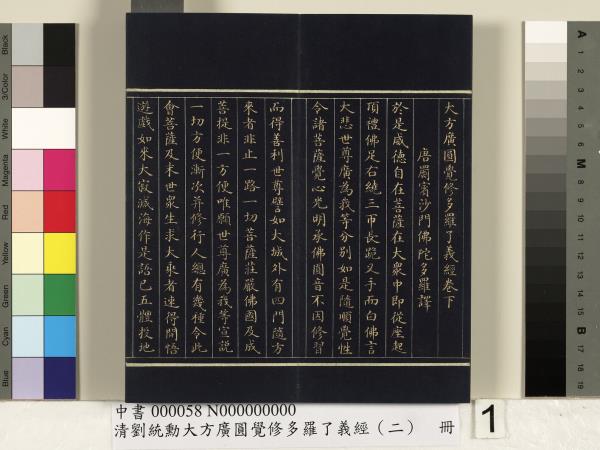 大方廣圓覺修多羅了義經卷下
唐罽賓沙門佛陀多羅譯
於是威德自在菩薩在大眾中即從座起
頂禮佛足右繞三帀長跪叉手而白佛言
大悲世尊廣為我等分別如是隨順覺性
令諸菩薩覺心光明承佛圓音不因修習
而得善利世尊譬如大城外有四門隨方
來者非止一路一切菩薩莊嚴佛國及成
菩提非一方便唯願世尊廣為我等宣說
一切方便漸次并修行人總有幾種令此
會菩薩及末世眾生求大乘者速得開悟
遊戲如來大寂滅海作是語已五體投地
中書 000058 N000000000
清劉統勳大方廣圓覺修多羅了義經（二） 冊
1
Black
3/Color
White
Magenta
Red
Yellow
Green
Cyan
Blue
A
1
2
3
4
5
6
M
8
9
10
11
12
13
14
15
B
17
18
19